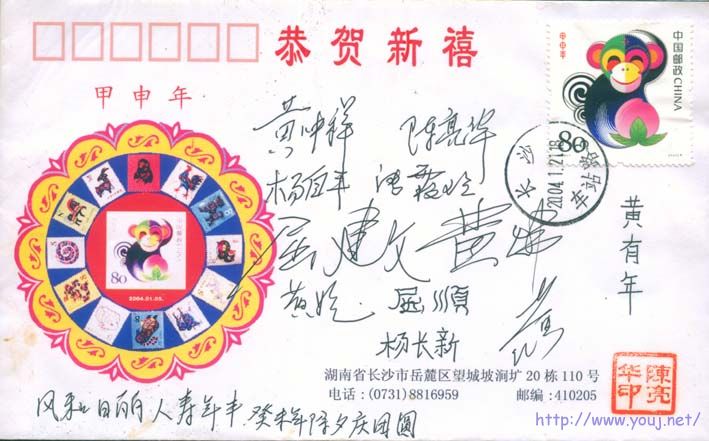 恭贺新禧
甲申年
甲申年
中国邮政 CHINA
80
长沙
2004.1.21.18
黄仲祥 陈亮华
杨百年
屈建文 黄
80
2004.01.05.
黄 屈顺
黄有年
杨长新
湖南省长沙市岳麓区望城坡涧圹20栋110号
电话:(0731)8816959 邮编:410205
陳亮华印
风和日丽 人寿年丰 癸未年除夕庆团圆
http://www.youj.net/